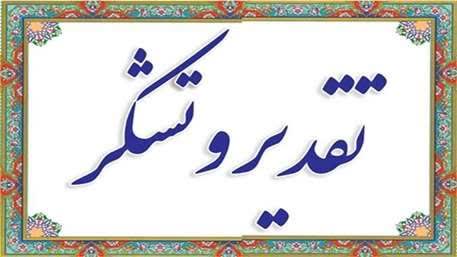 تقدیر و تشکر